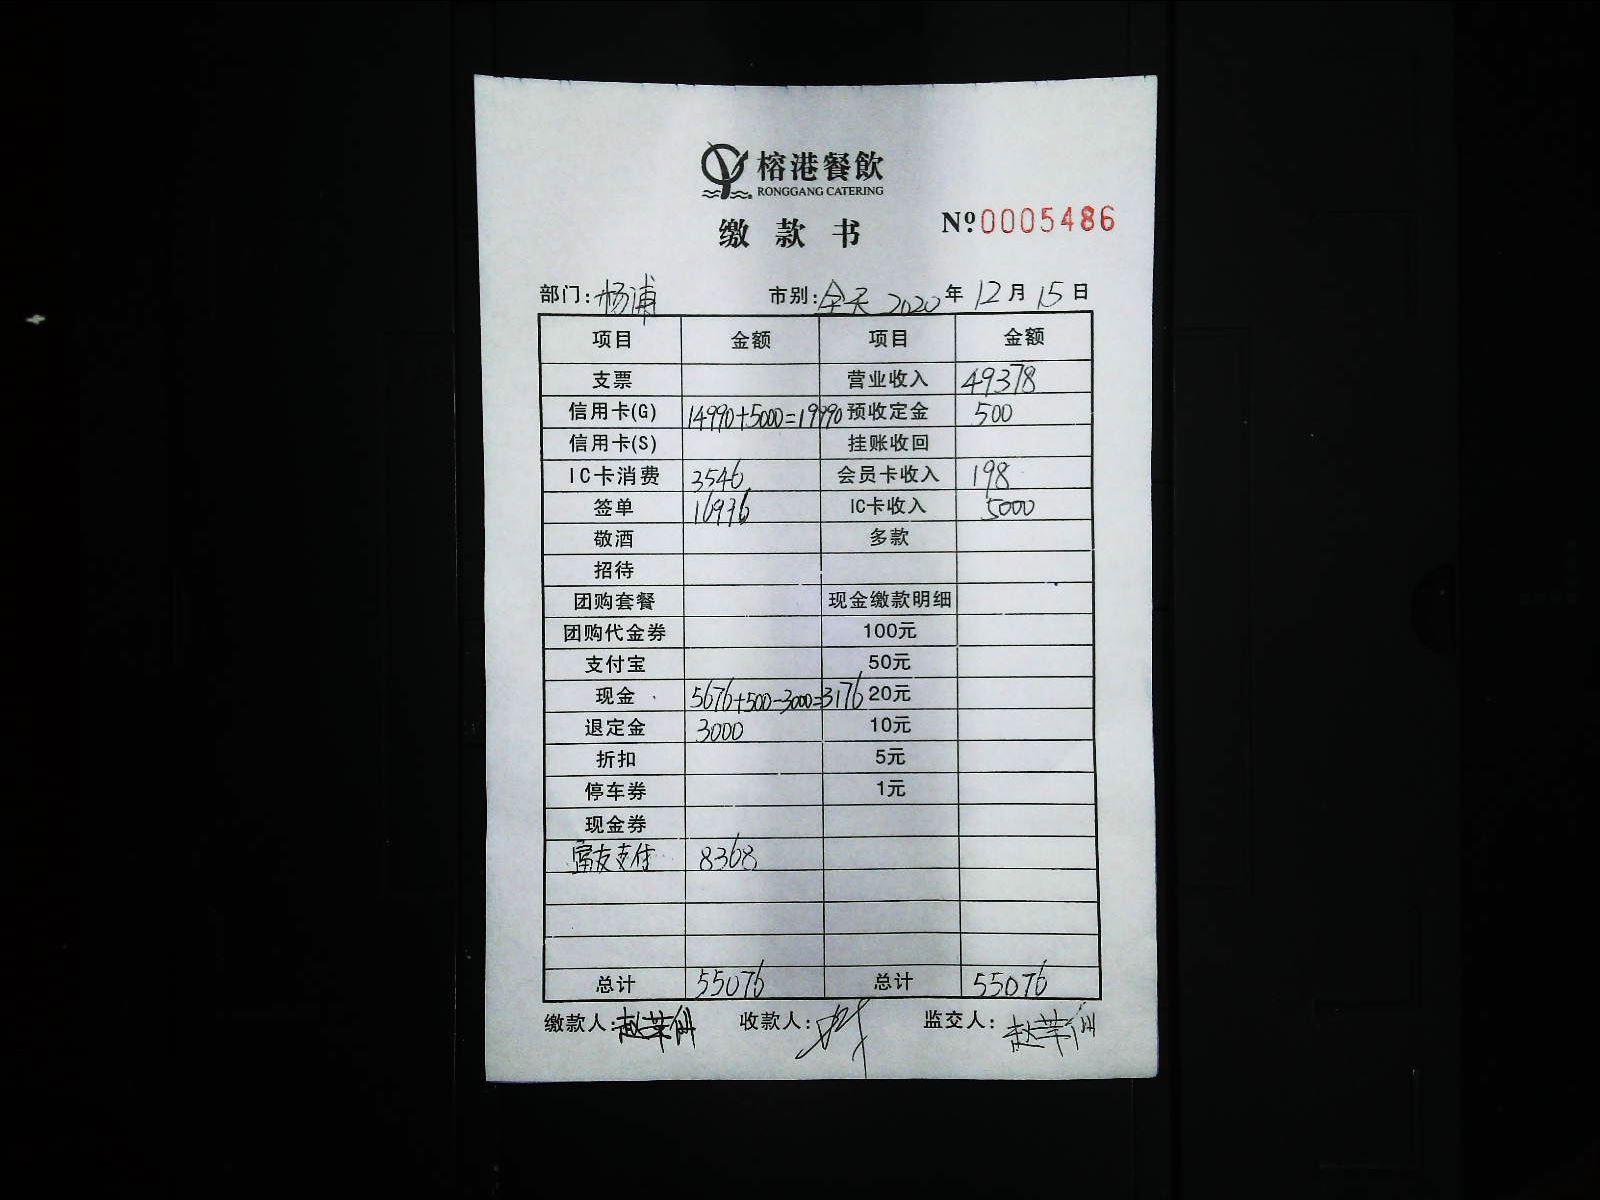 榕港餐飲
RONGGANG CATERING
缴款书 №0005486
部门:杨浦 市别:全天 2020年12月15日
项目 金额 项目 金额
支票 营业收入 49378
信用卡(G) 14990+5000=19990 预收定金 500
信用卡(S) 挂账收回
IC卡消费 3546 会员卡收入 198
签单 16996 IC卡收入 5000
敬酒 多款
招待
团购套餐 现金缴款明细
团购代金券 100元
支付宝 50元
现金 5676+500-3000=3176 20元
退定金 3000 10元
折扣 5元
停车券 1元
现金券
富友支付 8368
总计 55076 总计 55076
缴款人: 收款人: 监交人: